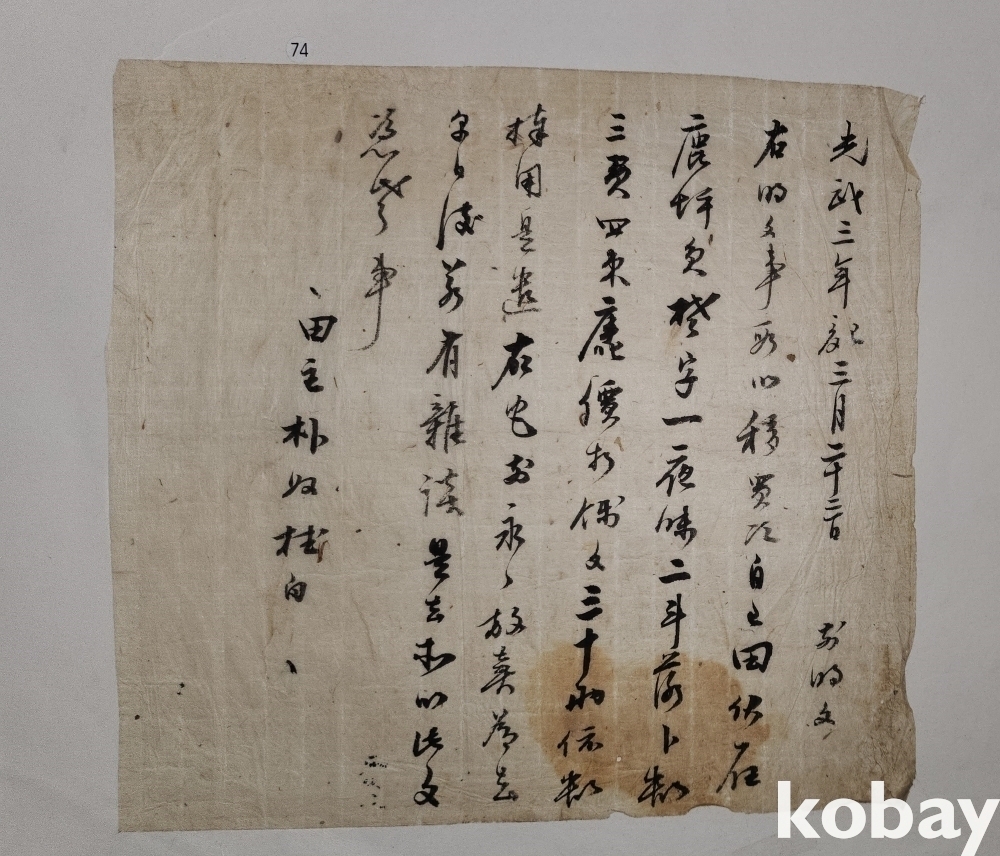 74
光武三年 三月二十三日 前明文
右明文事段以移買次自己田伏在
鹿坪員 字一夜味二斗落卜數
三負四束庫價折錢文三十兩依數
捧用是遣右宅前永〃放賣為去
乎日後若有雜談是去等以此文
憑考事
田主朴奴 白
kobay